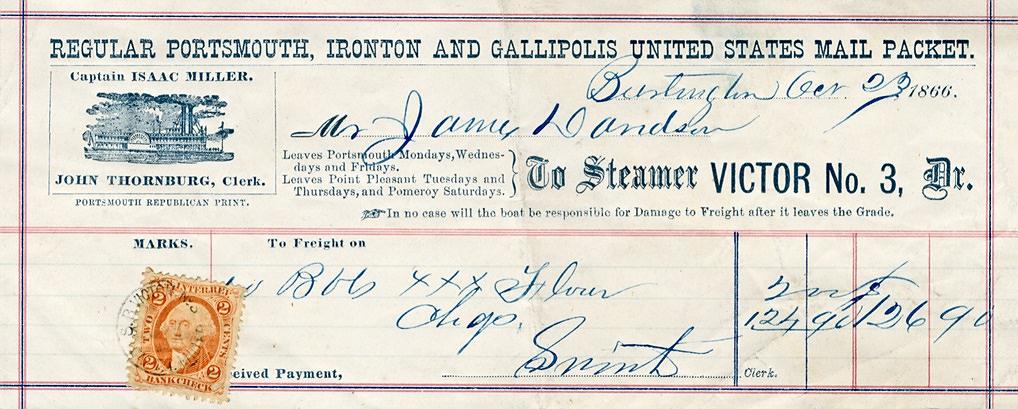 REGULAR PORTSMOUTH, IRONTON AND GALLIPOLIS UNITED STATES MAIL PACKET.
Captain ISAAC MILLER.
JOHN THORNBURG, Clerk.
PORTSMOUTH REPUBLICAN PRINT.
Burlington Oct. 23 1866.
Mr James Davidson
Leaves Portsmouth Mondays, Wednes-
days and Fridays.
Leaves Point Pleasant Tuesdays and
Thursdays, and Pomeroy Saturdays.
To Steamer VICTOR No. 3, Dr.
In no case will the boat be responsible for Damage to Freight after it leaves the Grade.
MARKS. To Freight on
Bbls XXX Flour 2
Chgs. 124 90 126 90
INTER. REV.
TWO CENTS
2 2 2 2
BANK CHECK
ceived Payment, Clerk.